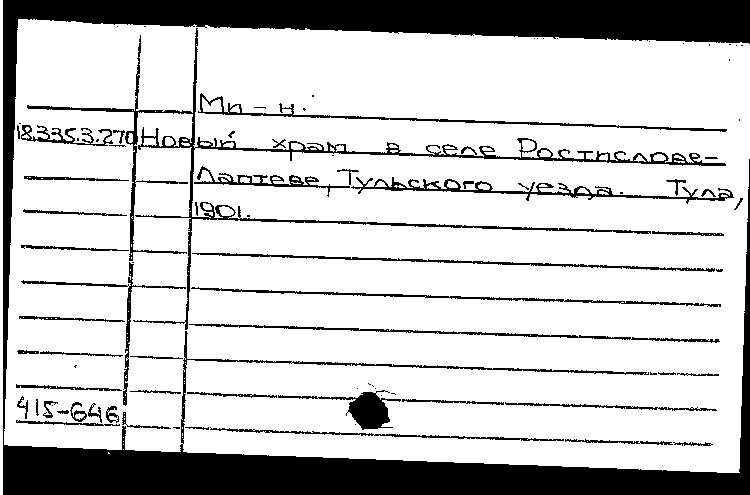 Ми-н.
18.335.3.270 Новый храм в селе Ростиславе-
Лаптеве, Тульского уезда. Тула,
1901.
415-646